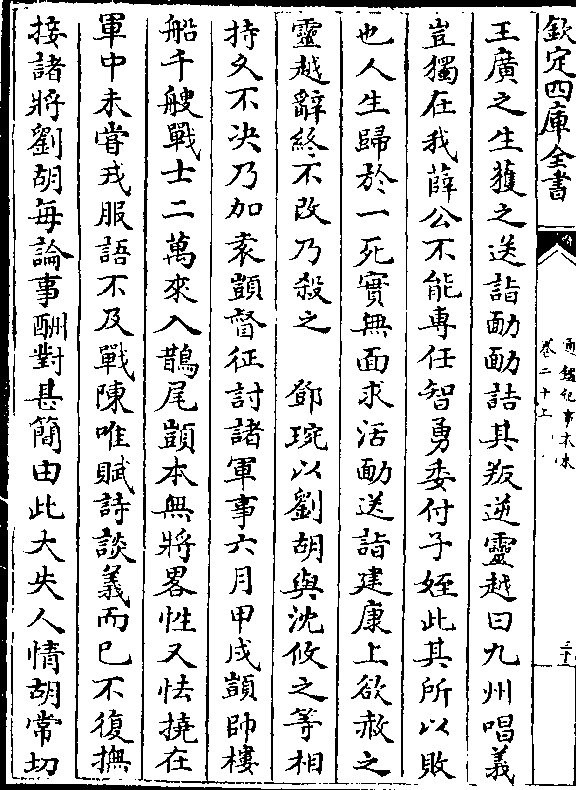 欽定四庫全書
通鑑紀事本末
卷二十上
王廣之生獲之送詣勔勔詰其叛逆靈越曰九州唱義
豈獨在我薛公不能專任智勇委付子姪此其所以敗
也人生歸於一死實無面求活勔送詣建康上欲赦之
靈越辭終不改乃殺之　鄧琬以劉胡與沈攸之等相
持久不決乃加袁顗督征討諸軍事六月甲戌顗帥樓
船千艘戰士二萬來入鵲尾顗本無將畧性又怯撓在
軍中未嘗戎服語不及戰陳唯賦詩談義而已不復撫
接諸將劉胡每論事酬對甚簡由此大失人情胡常切